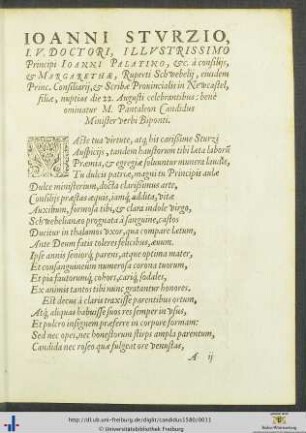 IOANNI STVRZIO,
I. V. DOCTORI, ILLVSTRISSIMO
Principi IOANNI PALATINO, &c. à consilijs,
& MARGARETHAE, Ruperti Schvvebelij, eiusdem
Princ. Consiliarij, & Scribae Prouincialis in Nevvcastel,
filiae, nuptias die 22. Augusti celebrantibus: benè
ominatur M. Pantaleon Candidus
Minister verbi Biponti.
MActe tua virtute, atq́ his carissime Sturzi
Auspicijs, tandem haustorum tibi laeta laborū
Praemia, & egregiae soluuntur munera laudis,
Tu dulcis patriae, magni tu Principis aulae
Dulce ministerium, docta clarissimus arte,
Consilijs praestas aequis, iamq́ addita, vitae
Auxilium, formosa tibi, & clara indole virgo,
Schvvebelianaeo prognata à sanguine, castos
Ducitur in thalamos vxor, qua compare laetum,
Ante Deum fatis toleres felicibus, aeuum.
Ipse annis seniorq́ parens, atque optima mater,
Et consanguineûm numerosa corona tuorum,
Et pia fautorumq́ cohors, cariq́ sodales,
Ex animis tantos tibi nunc gratantur honores.
Est decus à claris traxisse parentibus ortum,
Atq́ aliquas habuisse suos res semper in vsus,
Et pulcro insignem praeferre in corpore formam:
Sed nec opes, nec honestorum stirps ampla parentum,
Candida nec roseo quae fulget ore venustas,
A ij
http://dl.ub.uni-freiburg.de/diglit/candidus1580/0031
© Universitätsbibliothek Freiburg
Baden-Württemberg